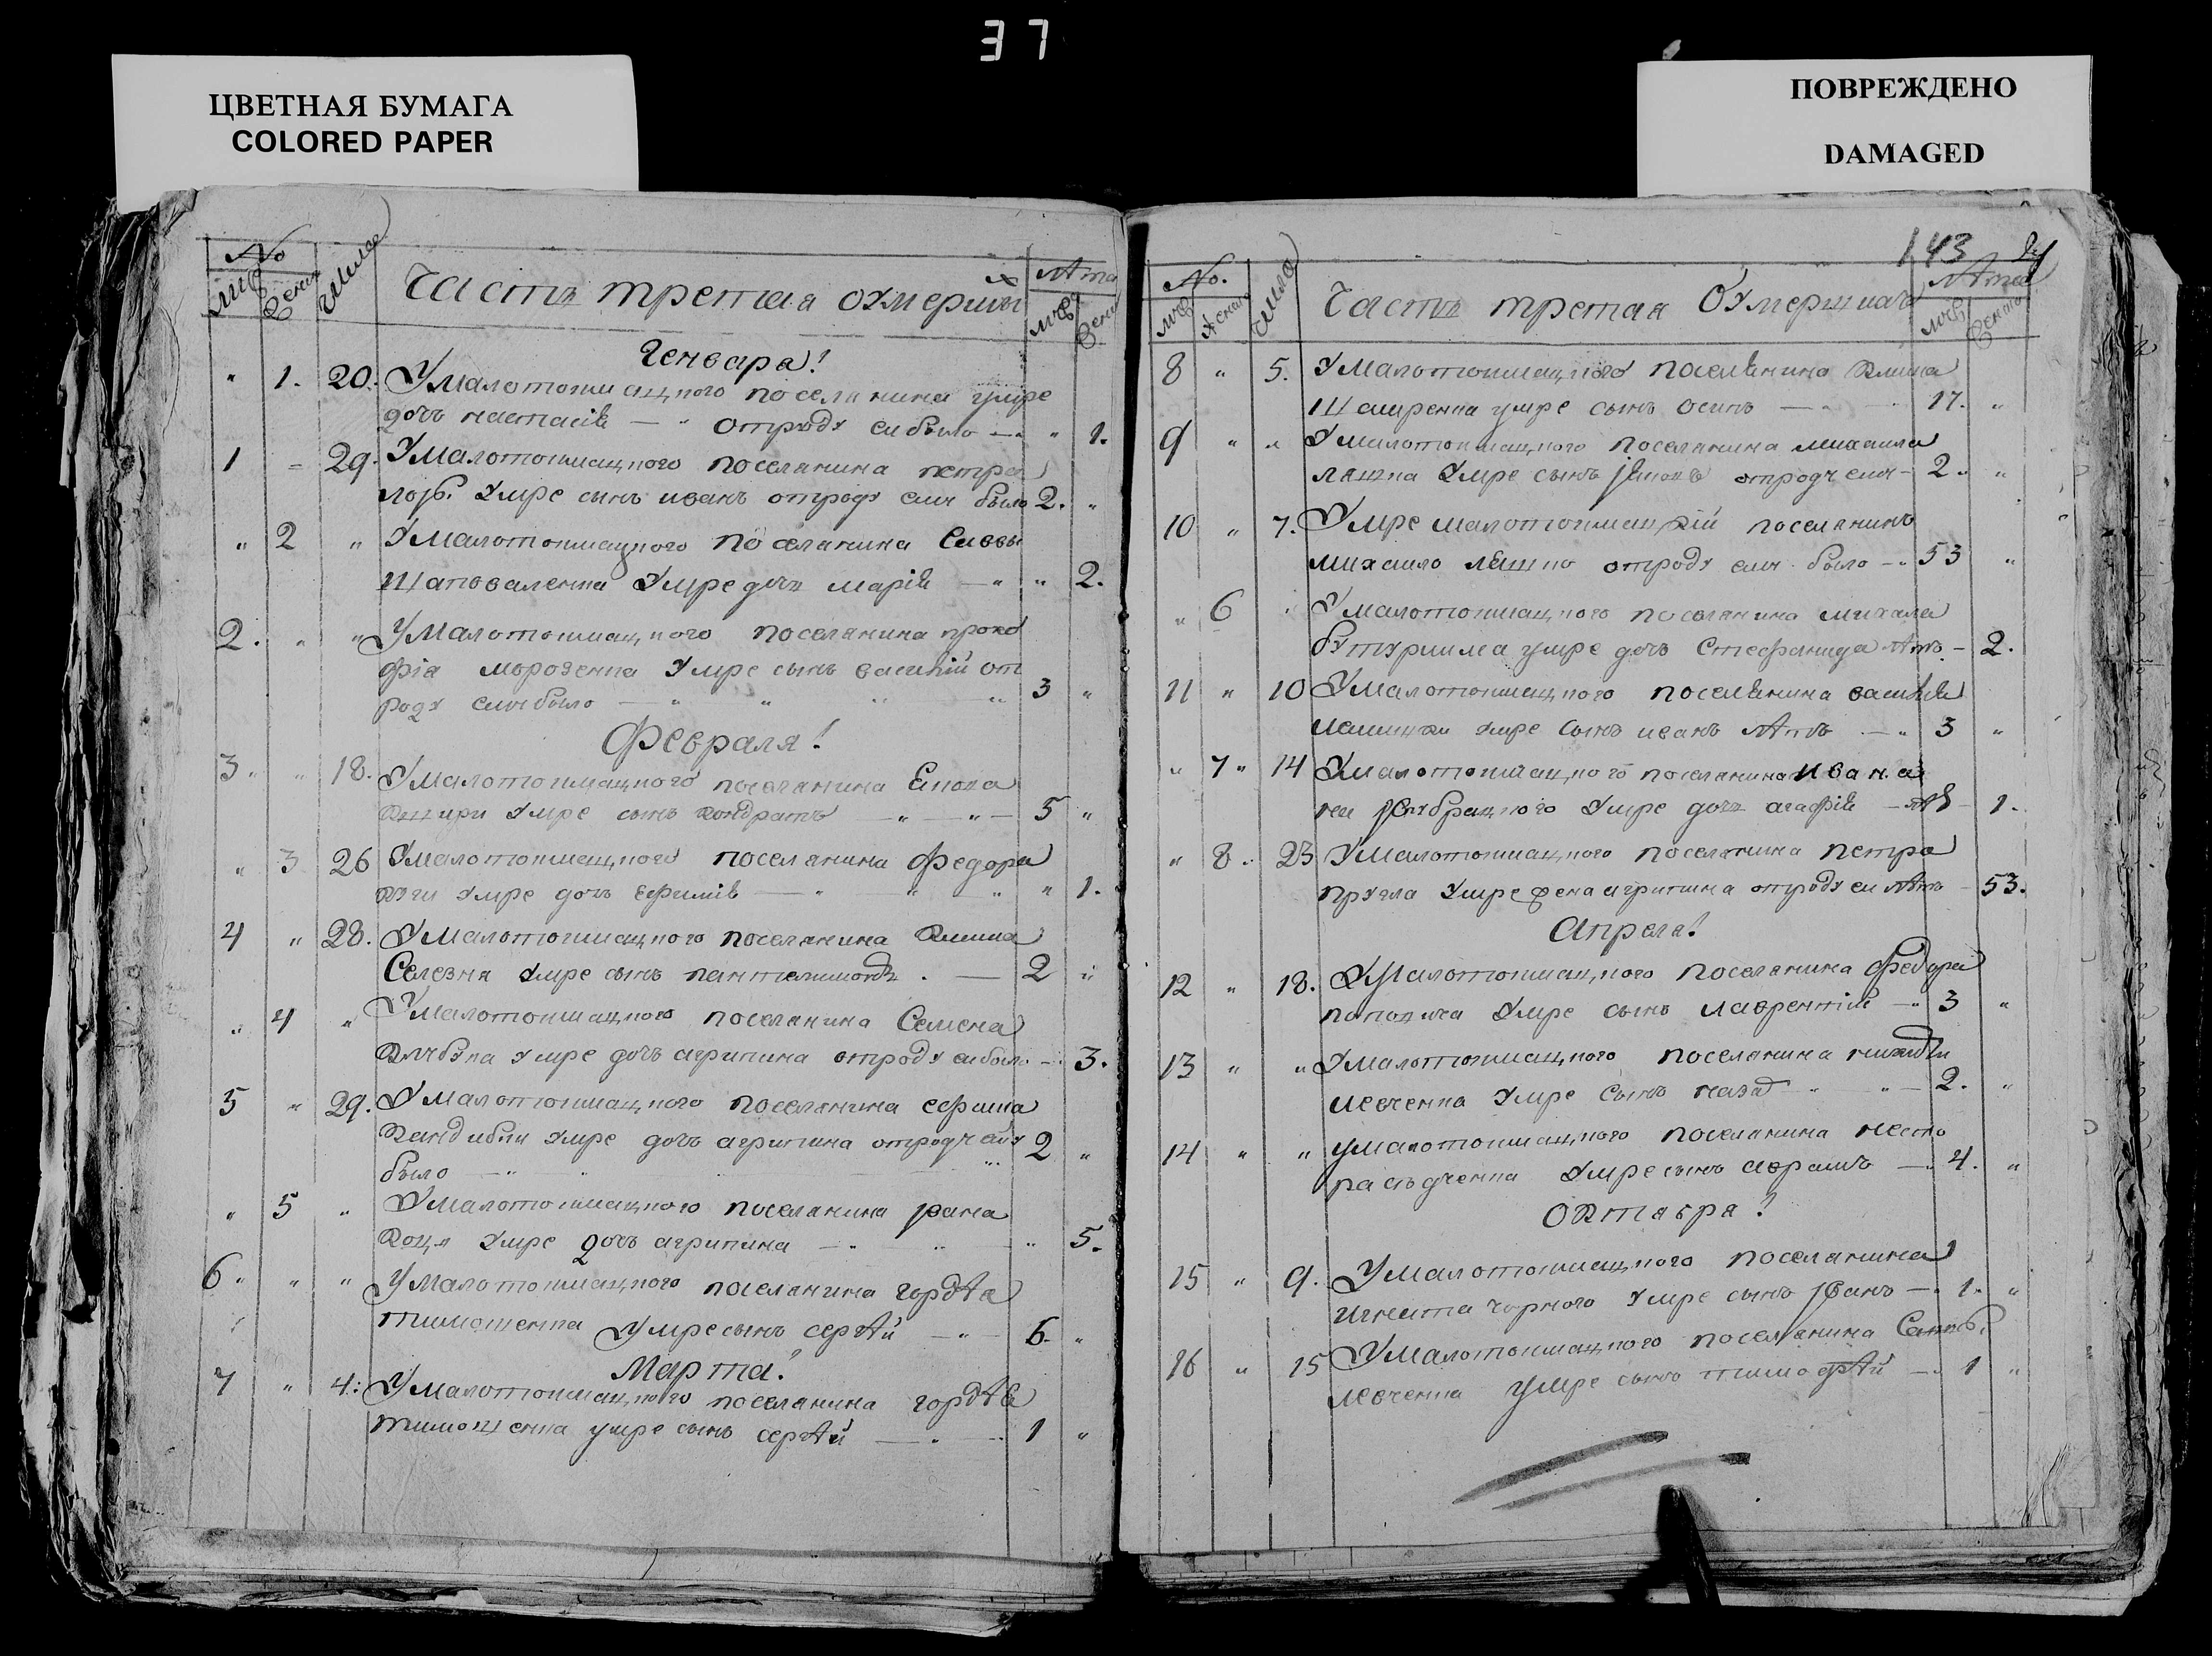 37
ЦВЕТНАЯ БУМАГА
COLORED PAPER
ПОВРЕЖДЕНО
DAMAGED
No
Число
Часть третая оумерших
Лета
Генваря!
" 1. 20. У малотокмацкого поселянина умре
дочь настасія — " отроду ей было — " " 1.
1 " 29. У малотокмацкого поселянина петра
умре сынъ иванъ отроду ему было 2. "
" 2 " У малотокмацкого поселянина Саввы
Шаповаленка умре дочь марія — " " 2.
2. " " У малотокмацкого поселянина проко
фія морозенка умре сынъ василій от
роду ему было — " " " " 3 "
Февраля!
3 " " 18. У малотокмацкого поселянина
умре сынъ кондратъ — " — " — 5 "
" 3 26 У малотокмацкого поселянина Федора
умре дочь ефимія — " " " " 1.
4 " 28. У малотокмацкого поселянина Клима
Селезня умре сынъ . — 2 "
" 4 " У малотокмацкого поселянина Семена
умре дочь агрипина отроду ей было — 3.
5 " 29. У малотокмацкого поселянина ефима
Кандибки умре дочь агрипина отроду ему 2 "
было — " "
" 5 " У малотокмацкого поселянина
Коця умре дочь агрипина — " " " 5.
6 " " " У малотокмацкого поселянина гордѣя
тимошенка умре сынъ сергѣй — " — 6. "
Марта!
7 " 4: У малотокмацкого поселянина гордѣя
тимошенка умре сынъ сергѣй — " 1 "
143
No.
Число
Часть третая Оумерших
Лета
8 " 5. У малотокмацкого поселянина Клима
умре сынъ осипъ — " 17. "
9 " " У малотокмацкого поселянина михаила
умре сынъ отроду ему — 2. "
10 " 7. Умре малотокмацкій поселянинъ
михаило отроду ему было — " 53 "
" 6 " У малотокмацкого поселянина михаила
умре дочь Стефанида летъ — 2.
11 " 10 У малотокмацкого поселянина василія
умре сынъ иванъ летъ — " 3 "
" 7 " 14 У малотокмацкого поселянина Ивана
умре дочь агафія — 1.
" 8. 23 У малотокмацкого поселянина петра
умре жена агрипина отроду ей летъ 53.
Апреля!
12 " 18. У малотокмацкого поселянина Федора
умре сынъ лаврентій — " 3 "
13 " " У малотокмацкого поселянина
левченка умре сынъ — " " — 2. "
14 " " У малотокмацкого поселянина несто
ра умре сынъ аврамъ — " 4. "
Октября!
15 " 9. У малотокмацкого поселянина
игната чорного умре сынъ — " 1. "
16 " 15 У малотокмацкого поселянина
левченка умре сынъ тимофѣй — " 1 "